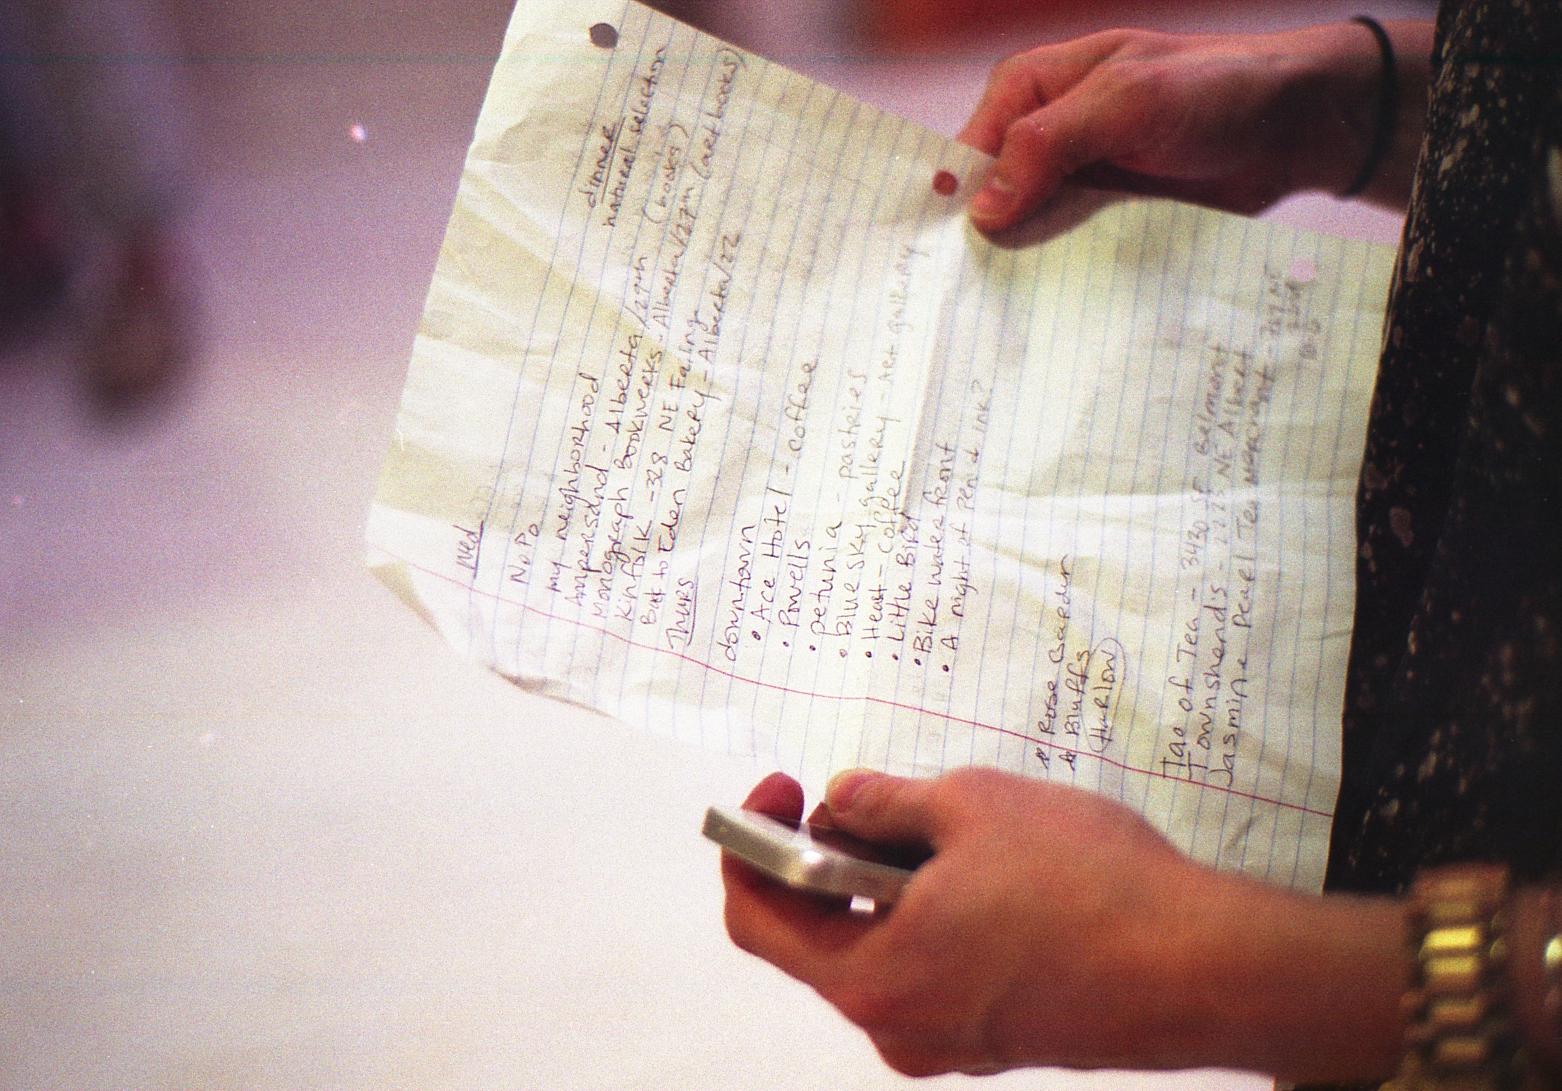 Wed
NoPo
dinner
natural selection
my neighborhood
Ampersand - Alberta/29th (books)
Monograph Bookwerks - Alberta/27th (art books)
Kinfolk - 328 NE Failing
Back to Eden Bakery - Alberta/22
Thurs
downtown
• Ace Hotel - coffee
• Powells
• petunia - pastries
• Blue sky gallery - Art gallery
• Heart - coffee
• Little Bird
• Bike waterfront
• A night at Pen & Ink?
Rose Garden
Bluffs
Harlow
Tao of Tea - 3430 SE Belmont
Townshends - 2223 NE Albert
Jasmine Pearl Tea Merchant - NE